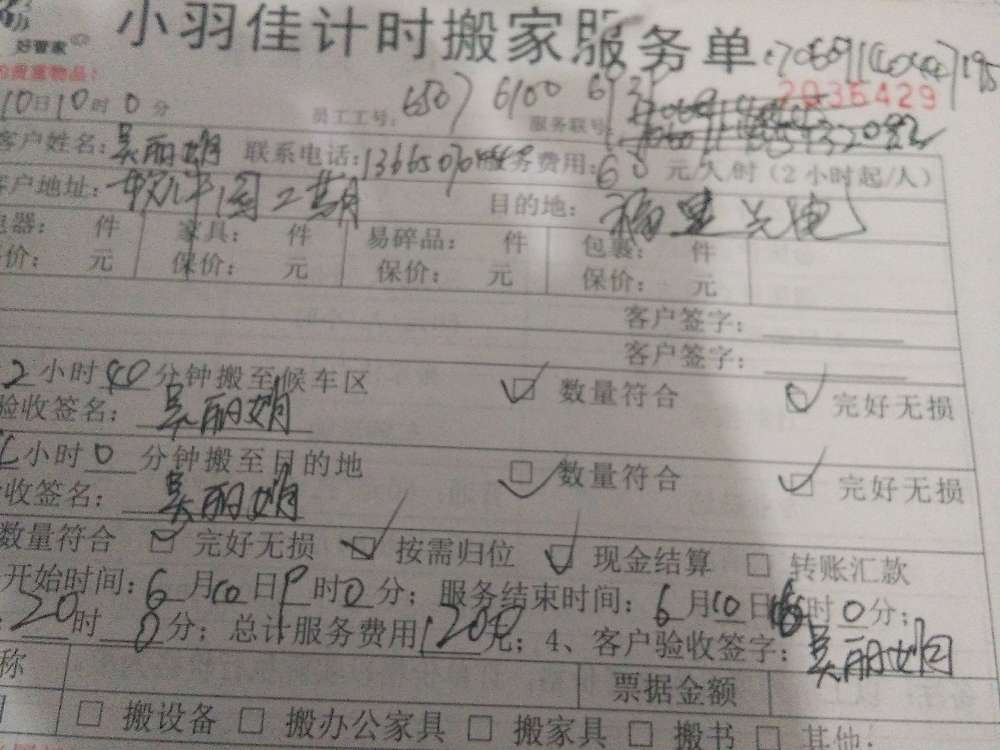 好管家
小羽佳计时搬家服务单
贵重物品!
10日10时0分 员工工号: 6507 6100 服务联号: 2036429
客户姓名: 吴丽娟 联系电话: 服务费用: 60 元/人/时(2小时起/人)
客户地址: 软件园二期 目的地:
电器: 件 家具: 件 易碎品: 件 包裹: 件
保价: 元 保价: 元 保价: 元 保价: 元
客户签字:
客户签字:
2小时40分钟搬至候车区 数量符合 完好无损
验收签名: 吴丽娟
小时0分钟搬至目的地 数量符合 完好无损
验收签名: 吴丽娟
数量符合 完好无损 按需归位 现金结算 转账汇款
开始时间: 6月10日9时0分; 服务结束时间: 6月10日 时0分;
20时0分; 总计服务费用1200元; 4、客户验收签字: 吴丽娟
称 票据金额
搬设备 搬办公家具 搬家具 搬书 其他: